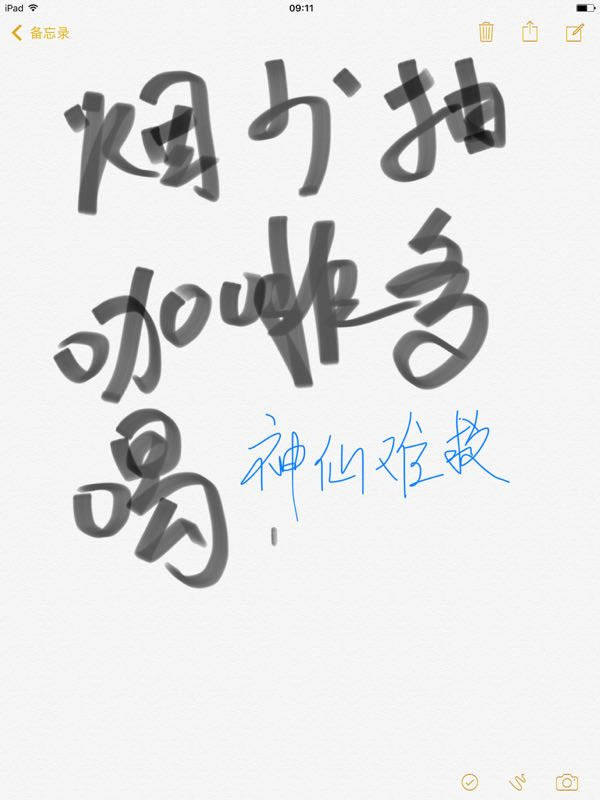 iPad 09:11
备忘录
烟少抽
咖啡多
喝 神仙难救